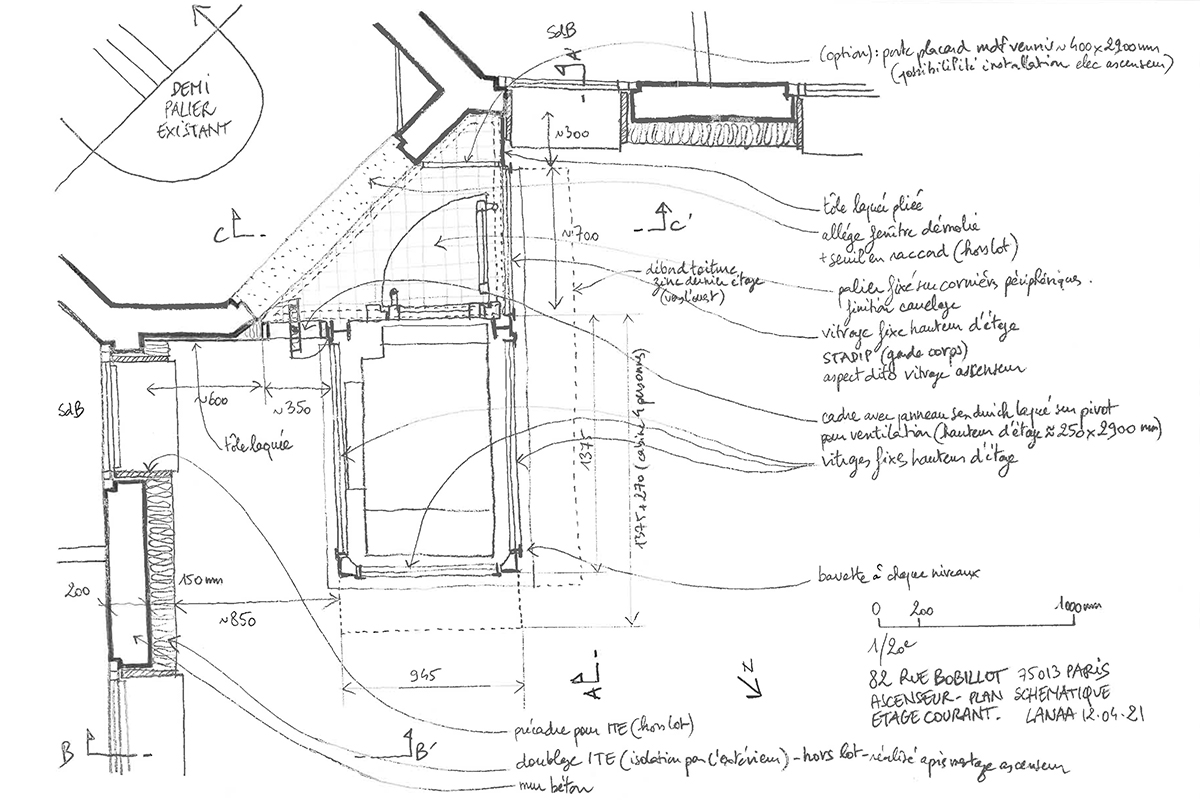 SdB
A
(option) : porte placard mdf vernis ~ 400 x 2900 mm
(possibilité installation elec ascenseur)
DEMI
PALIER
EXISTANT
~300
tôle laquée pliée
allége fenêtre démolie
+ seuil en raccord (hors lot)
C
C'
~700
débord toiture
zinc dernier étage
palier fixé sur cornières périphériques.
finition carrelage
vitrage fixe hauteur d'étage
STADIP (garde corps)
aspect dito vitrage ascenseur
SdB
~600
~350
tôle laquée
1375
1375 + 270 (cabine 4 personnes)
cadre avec panneau sandwich laqué sur pivot
pour ventilation (hauteur d'étage ≈ 250 x 2900 mm)
vitrages fixes hauteur d'étage
bavette à chaque niveaux
200
150 mm
~850
945
A
N
0 200 1000 mm
1/20e
82 RUE BOBILLOT 75013 PARIS
ASCENSEUR - PLAN SCHEMATIQUE
ETAGE COURANT. LANAA 12.04.21
B
B'
précadre pour ITE (hors lot)
doublage ITE (isolation par l'extérieur) - hors lot - réalisé après montage ascenseur
mur béton